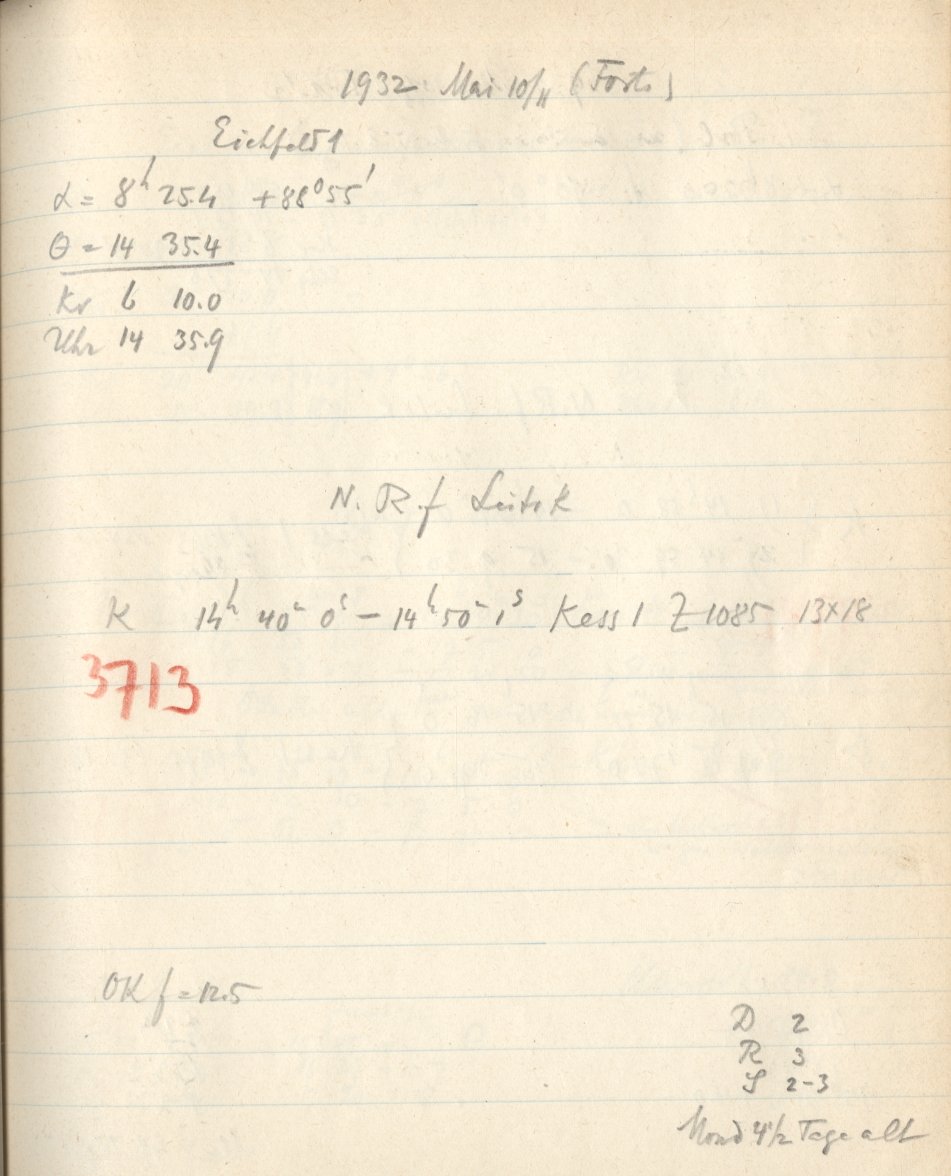 1932 Mai 10/11 (Forts)
Eichfeld 1
α = 8ʰ 25.4 +88°55'
θ = 14 35.4
Kr 6 10.0
Uhr 14 35.9
N. R. f Leitrk
K 14ʰ 40ᵐ 0ˢ – 14ʰ 50ᵐ 1ˢ Kass 1 Z 1085 13×18
3713
OK f = 12.5
D 2
R 3
S 2-3
Mond 4 1/2 Tage alt